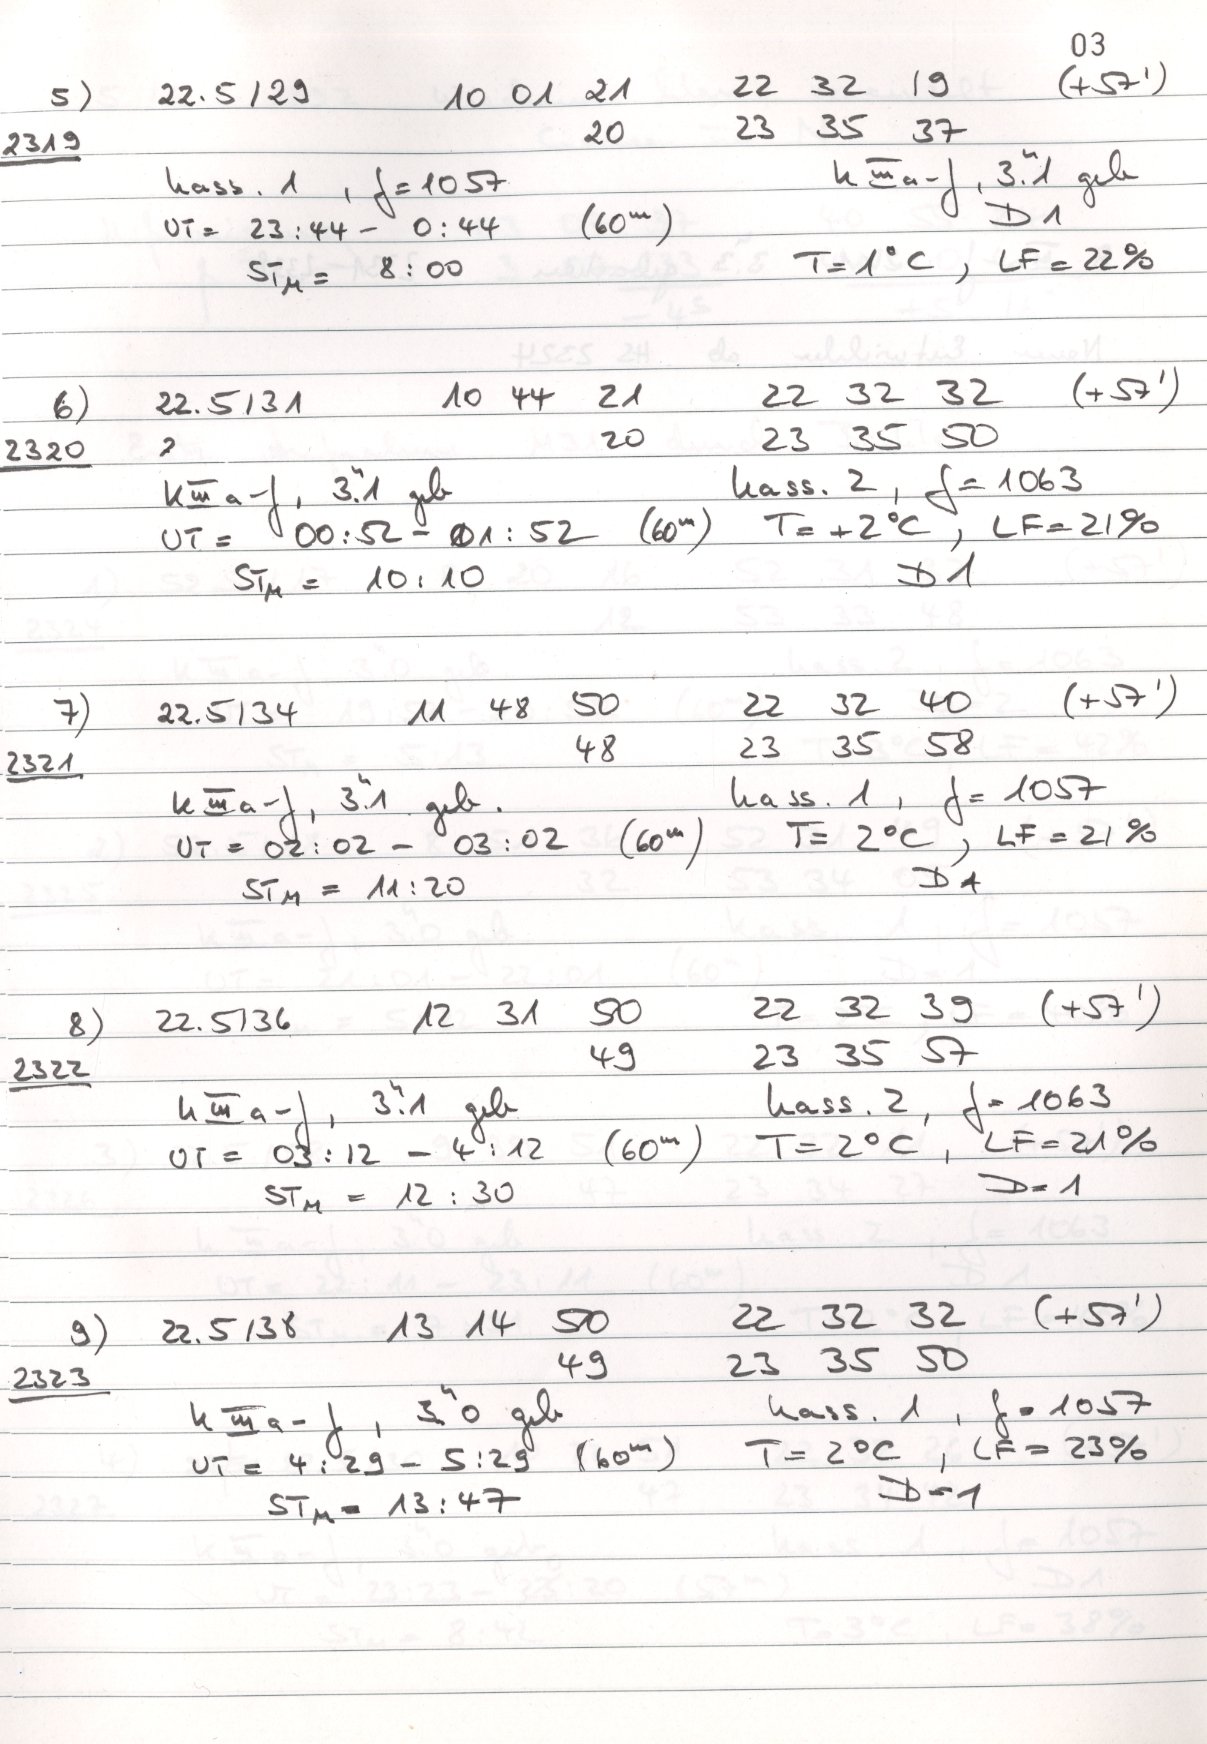 03
5) 22.5129 10 01 21 22 32 19 (+57')
2319 20 23 35 37
Kass. 1 , f=1057 K III a-f, 3."1 geb
D1
UT = 23:44 - 0:44 (60ᵐ)
ST_M = 8:00 T=1°C , LF=22%
6) 22.5131 10 44 21 22 32 32 (+57')
2320 ? 20 23 35 50
K III a-f, 3."1 geb Kass. 2, f=1063
UT = 00:52 - 01:52 (60ᵐ) T=+2°C , LF=21%
ST_M = 10:10 D1
7) 22.5134 11 48 50 22 32 40 (+57')
2321 48 23 35 58
K III a-f, 3."1 geb. Kass. 1, f=1057
UT = 02:02 - 03:02 (60ᵐ) T=2°C , LF=21%
ST_M = 11:20 D1
8) 22.5136 12 31 50 22 32 39 (+57')
2322 49 23 35 57
K III a-f, 3."1 geb Kass. 2, f=1063
UT = 03:12 - 4:12 (60ᵐ) T=2°C , LF=21%
ST_M = 12:30 D=1
9) 22.5138 13 14 50 22 32 32 (+57')
2323 49 23 35 50
K III a-f, 3."0 geb Kass. 1, f=1057
UT = 4:29 - 5:29 (60ᵐ) T=2°C , LF=23%
ST_M = 13:47 D=1